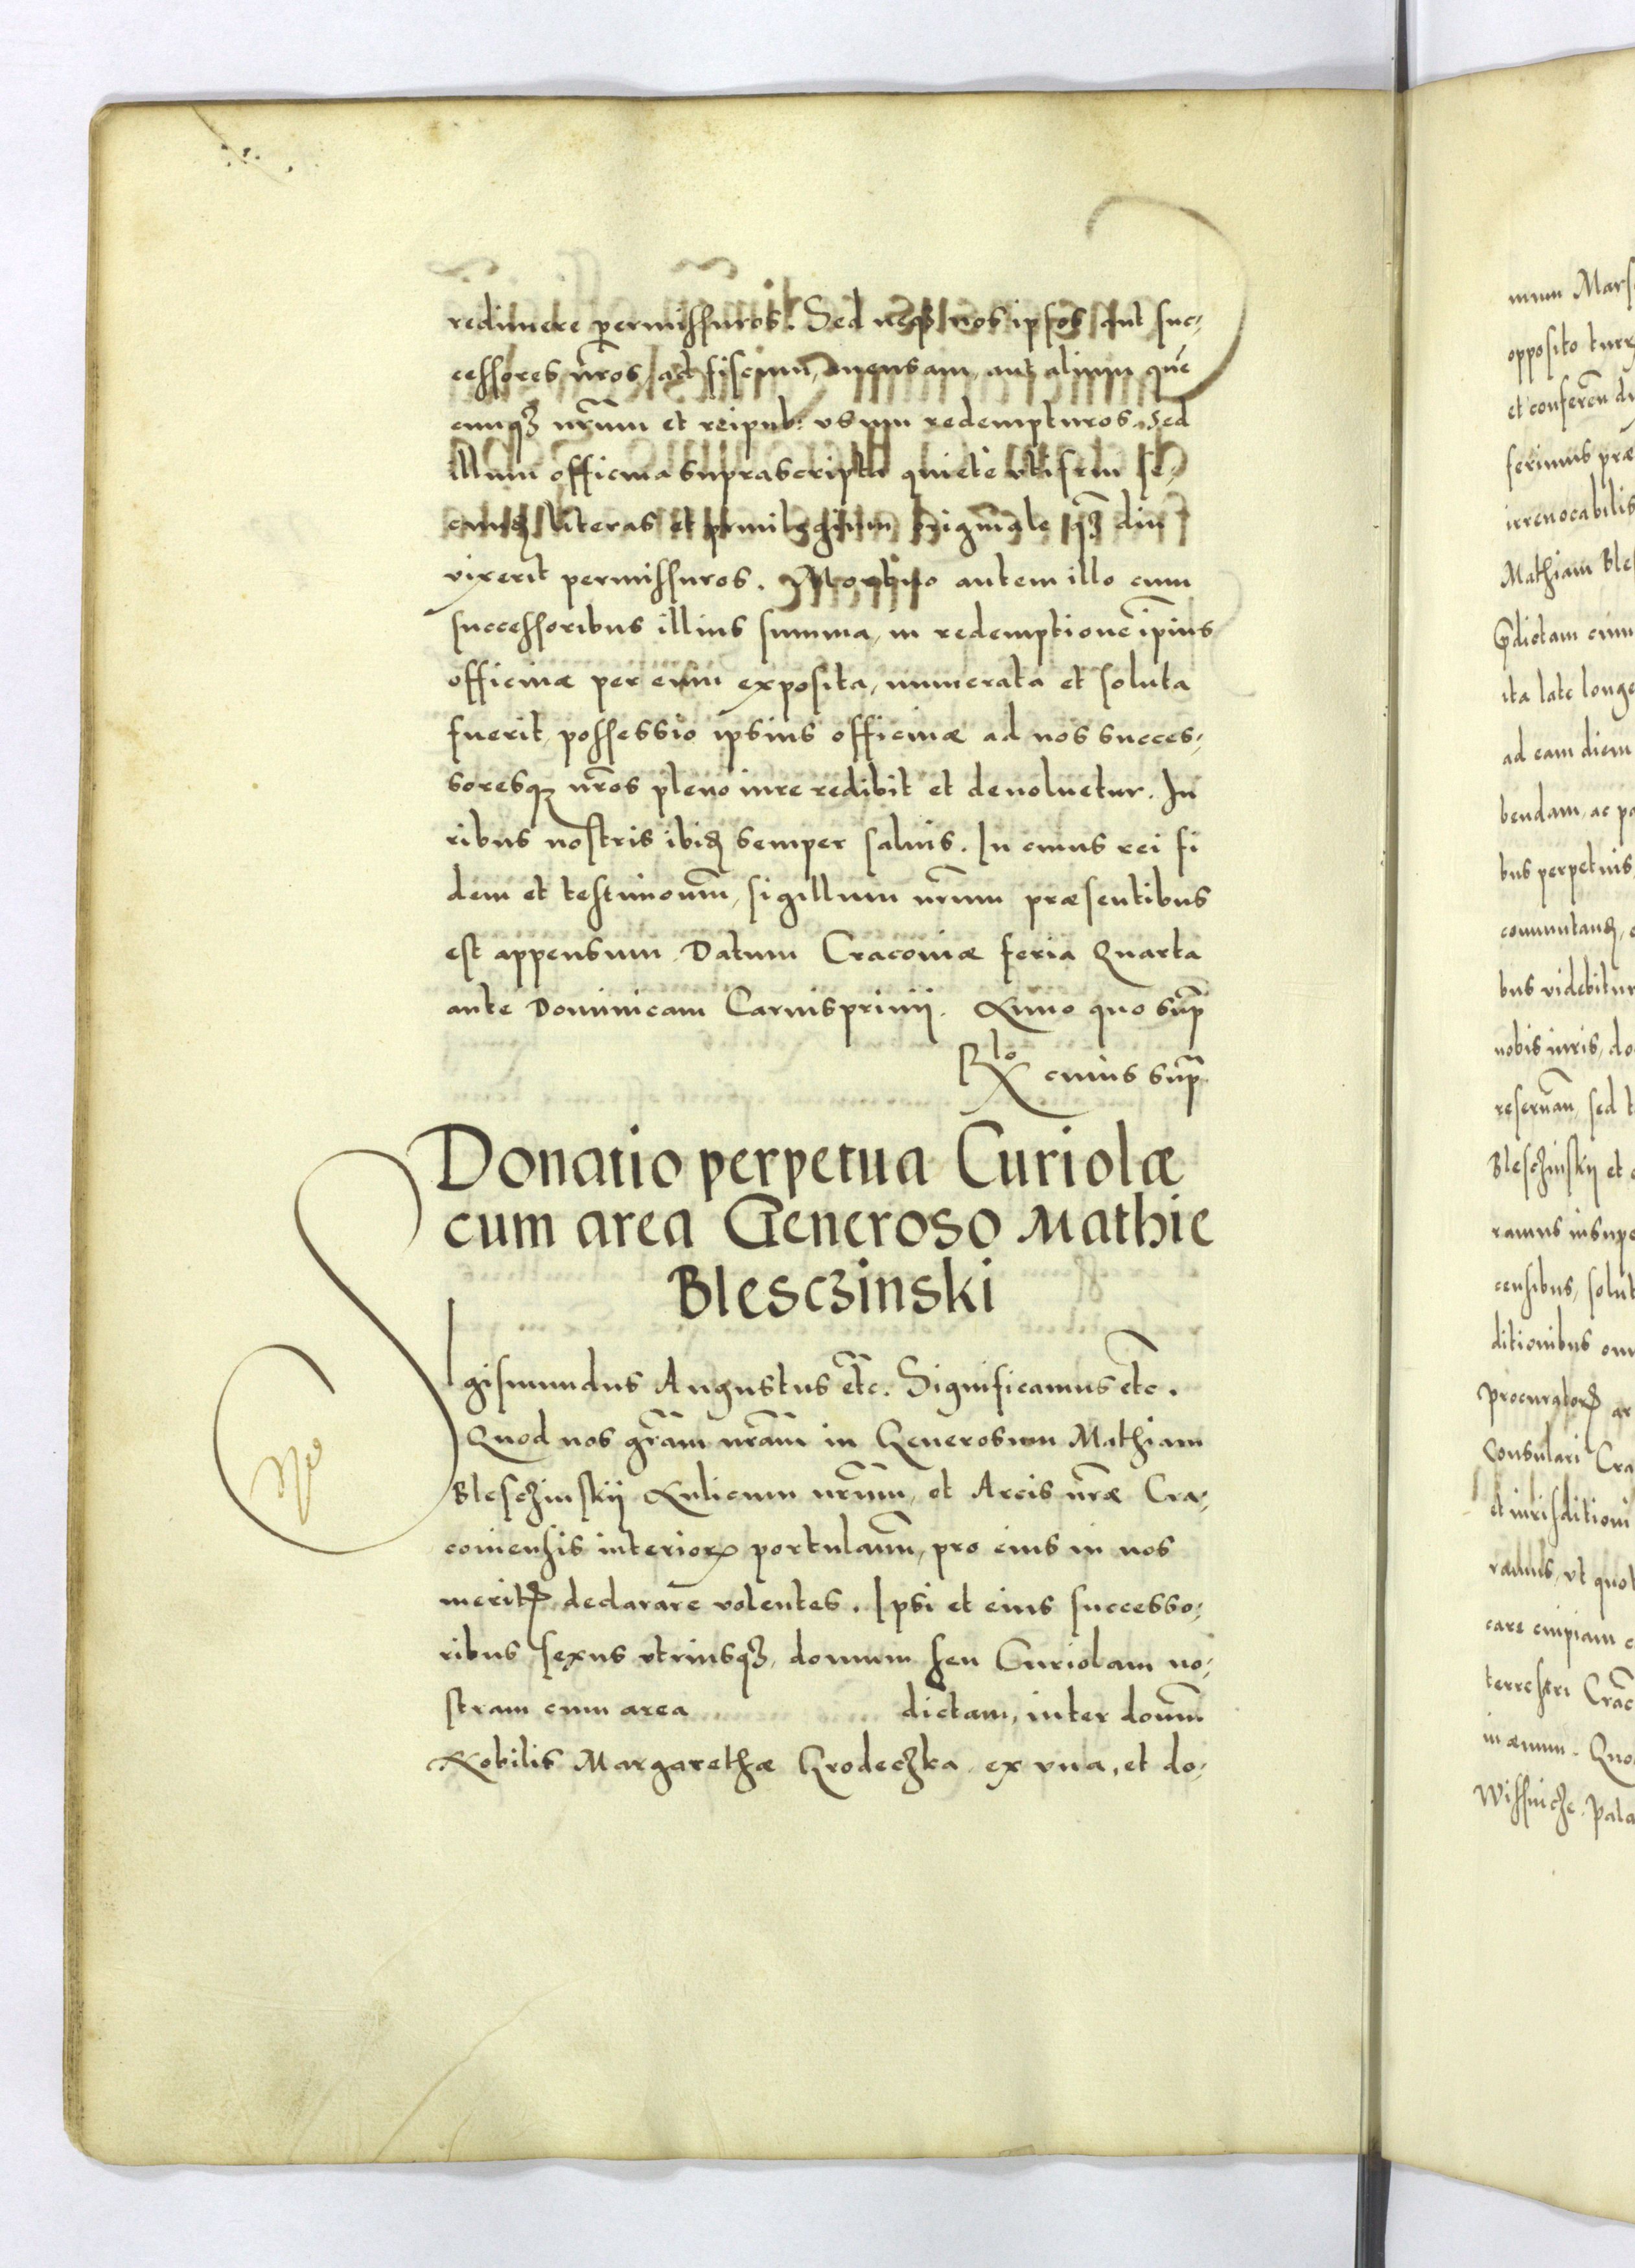 redimere permissuros. Sed neq3 nos ipsos aut suc-
cessores nr̃os, ad fiscum, mensam, aut alium quē
cunq3 nr̃um et reipub: vsum redempturos. Sed
illum officina suprascripta quiete vti frui se-
literas et priuilegium originale q̃3 diu
vixerit permissuros. Mortuo autem illo cum
successoribus illius summa, in redemptione ip̃ius
officinæ per eum exposita, numerata et soluta
fuerit, possessio ipsius officinæ ad nos succes-
soresq3 nr̃os pleno iure redibit et deuoluetur. Iu
ribus nostris ibid semper saluis. In cuius rei fi
dem et testimoniũm, sigillum nr̃um præsentibus
est appensum. Datum Cracouiæ feria Quarta
ante Dominicam Carnispriuij. Anno quo sup̃
Rlõ cuius sup̃
Donatio perpetua Curiolæ
cum area Generoso Mathie
Blesczinski
Sigismundus Augustus etc̃. Significamus etc̃.
Quod nos gr̃am nr̃am in Generosum Mathiam
Blesczinskij Aulicum nr̃um, et Arcis nr̃æ Cra-
couiensis interior portulanũm, pro eius in nos
merit declarare volentes. Ipsi et eius successo-
ribus sexus vtriusq3, domum seu Curiolam no-
stram cum area dictam, inter domũm
Nobilis Margarethæ Grodeczka ex vna, et do-
mum Mars
opposito turr
et conferen̄ d
ferimus præ
irreuocabilis
Mathiam Bles
p̃dictam cum
ita late longe
ad eam diem
bendam, ac po
bus perpetuis
commutand,
bus videbitur
nobis iuris, do
reseruan̄, sed t
Blesczinskij et
ramus insupe
censibus, solut
ditionibus om
procurator ar
Consulari Cra
et iurisditioni
ramus, vt quot
care cuipiam
terrestri Crac̃
in æuum. Quo
Wissnicze. Pala